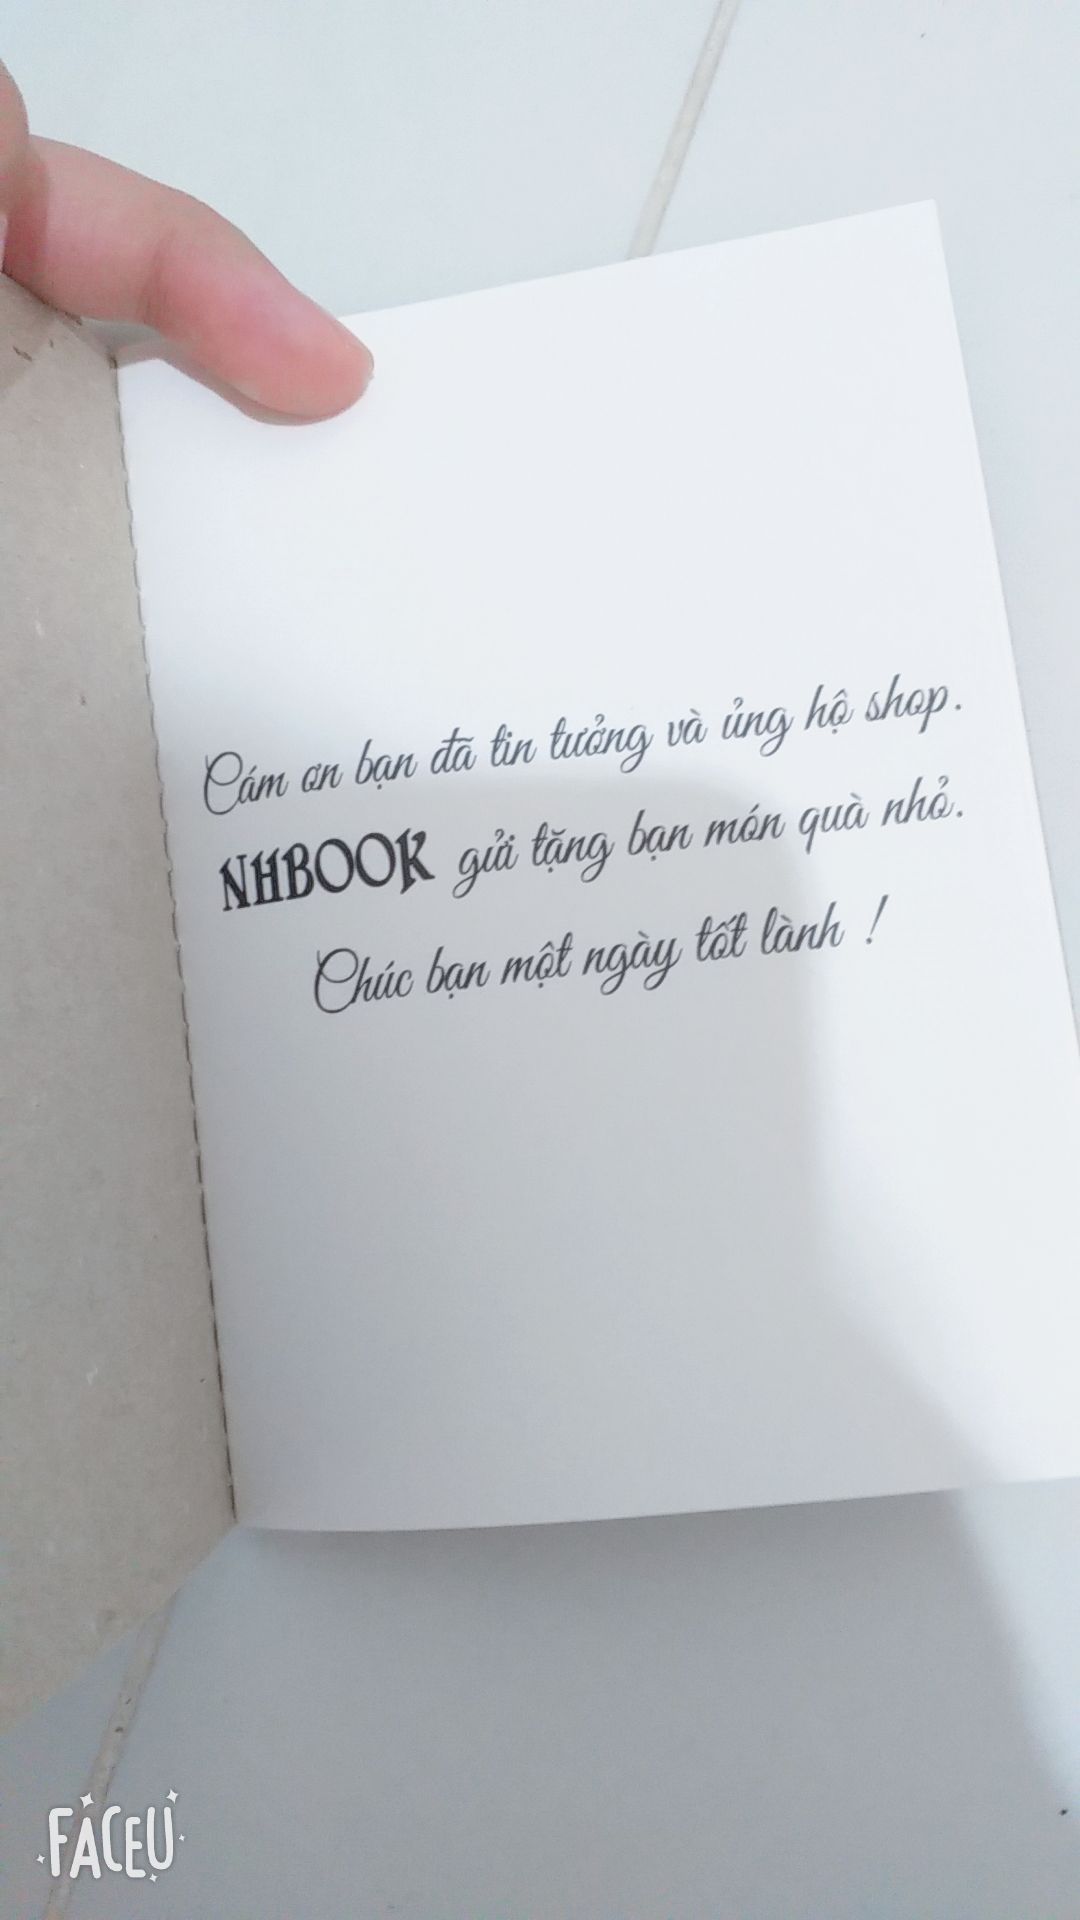 Cám ơn bạn đã tin tưởng và ủng hộ shop.
NHBOOK gửi tặng bạn món quà nhỏ.
Chúc bạn một ngày tốt lành !
FACEU